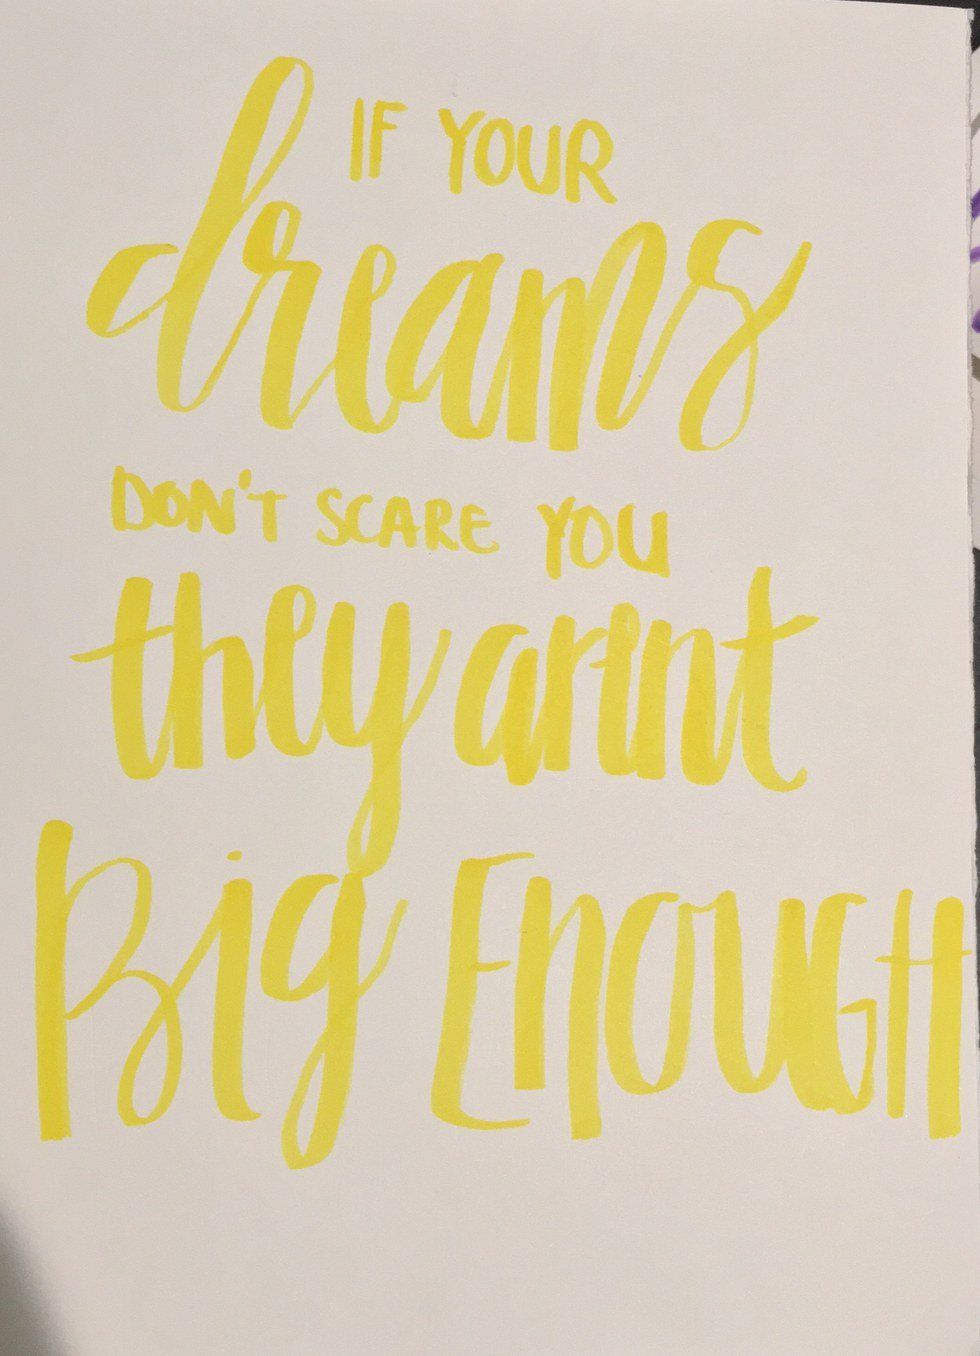 IF YOUR
dreams
DON'T SCARE YOU
they arnt
Big ENOUGH